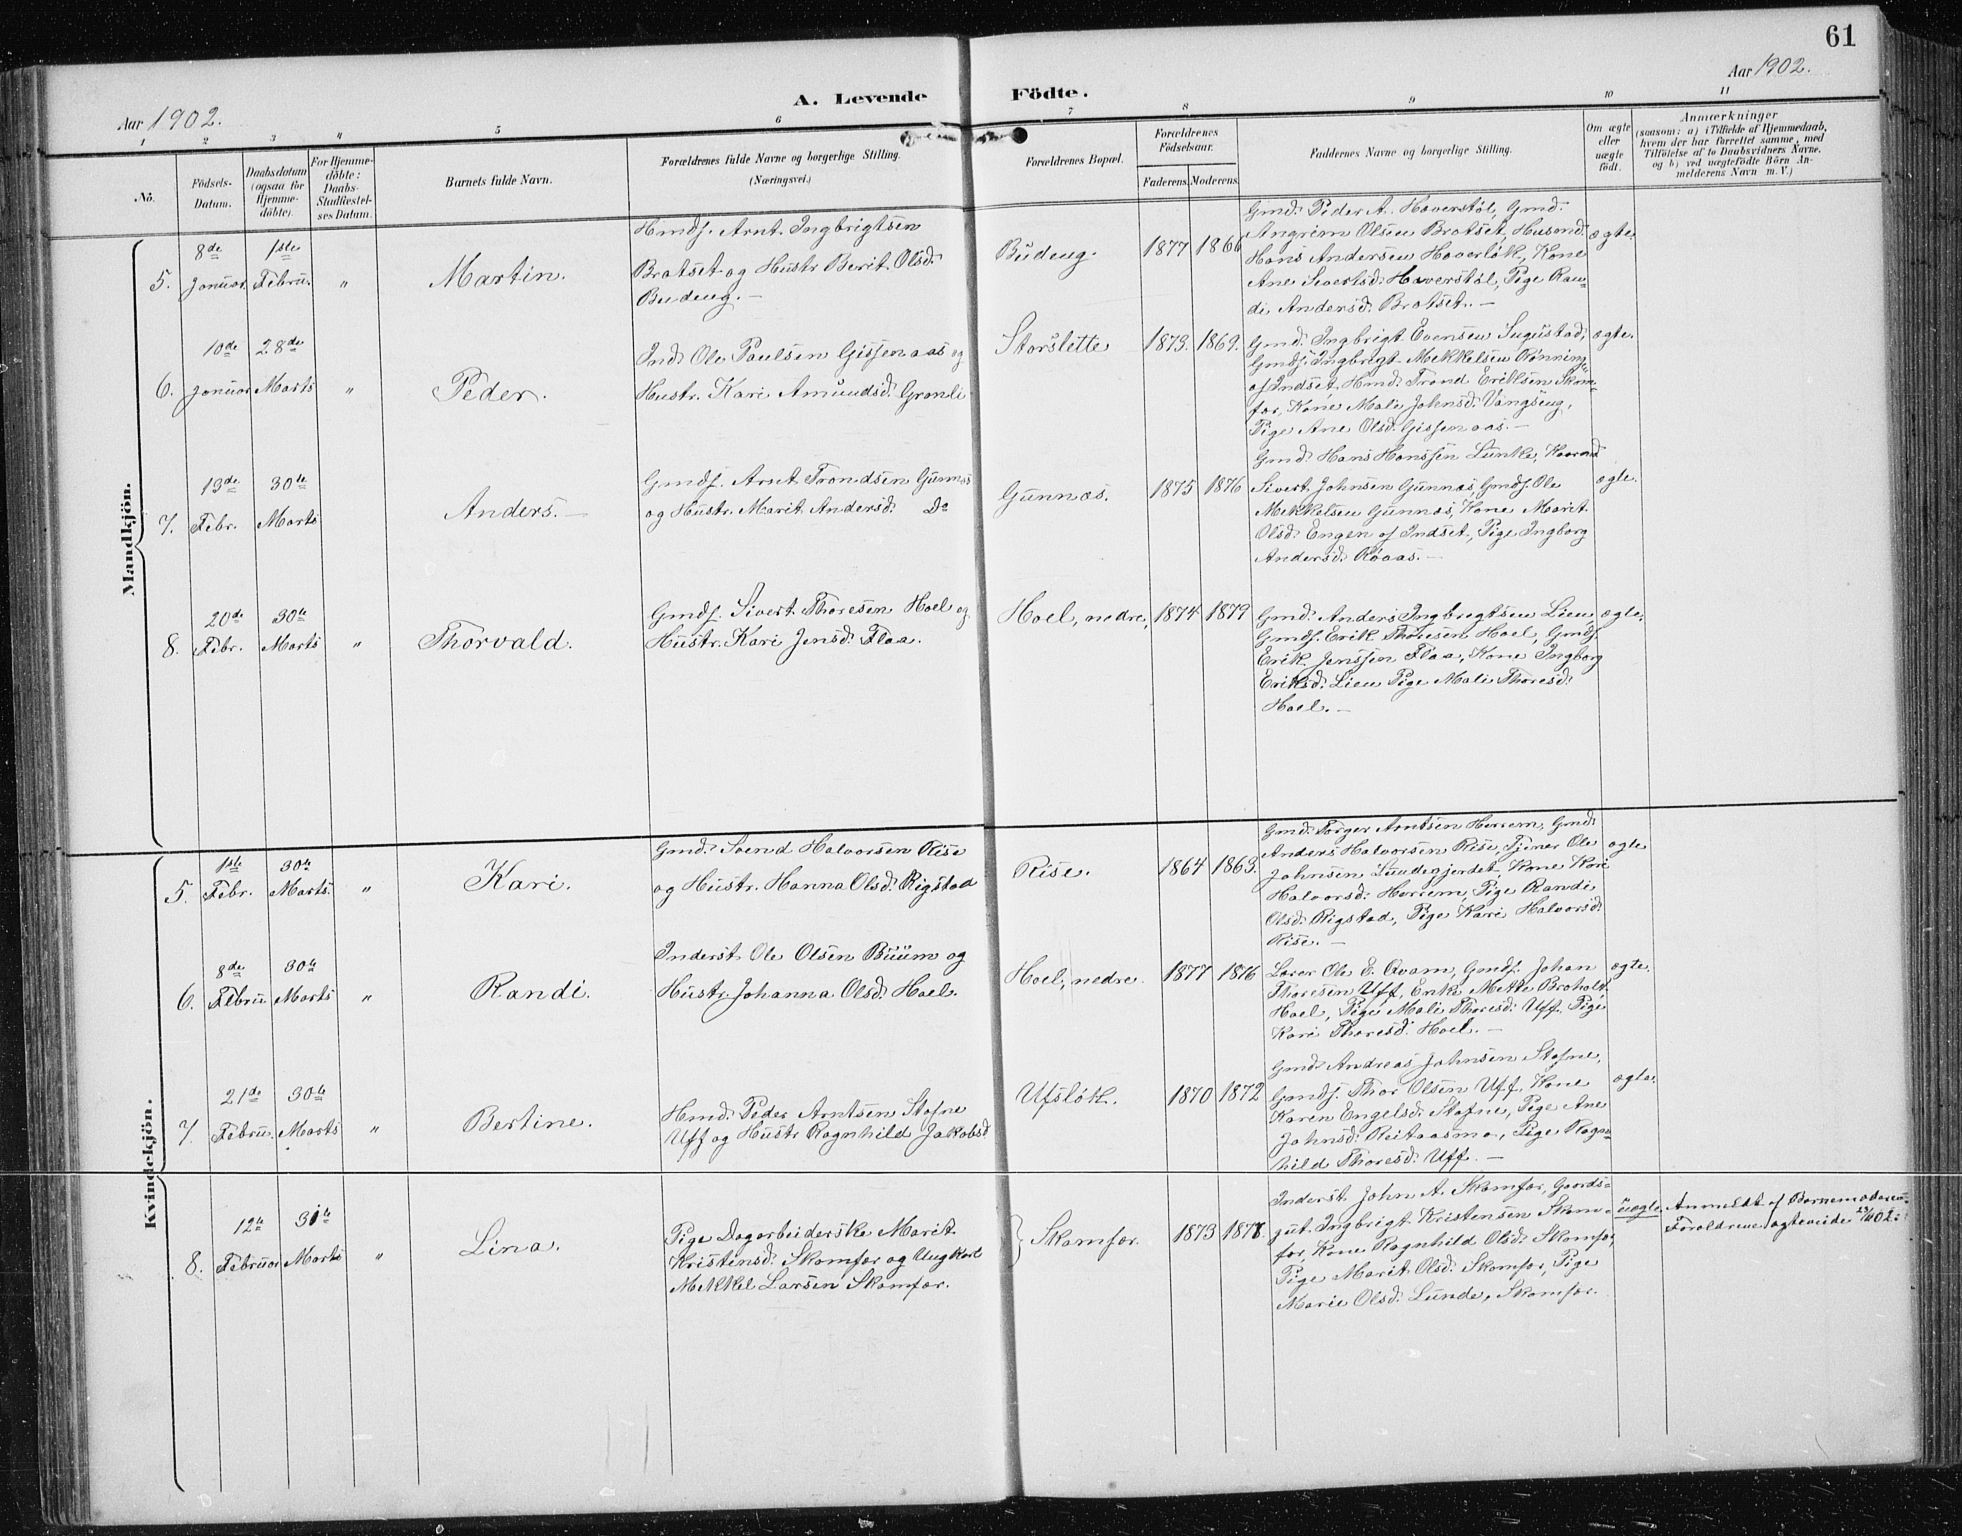 61
Aar 1902.
A. Levende Födte.
Aar 1902.
1 2 3 4 5 6 7 8 9 10 11
No.
Födsels-Datum.
Daabsdatum (ogsaa for Hjemme-döbte).
For Hjemme-döbte: Daabs-Stadfæstel-ses Datum.
Barnets fulde Navn.
Forældrenes fulde Navne og borgerlige Stilling.
(Næringsvei.)
Forældrenes Bopæl.
Forældrenes Födselsaar.
Faderens. Moderens.
Faddernes Navne og borgerlige Stilling.
Om ægte eller uægte födt.
Anmærkninger
(saasom: a) i Tilfælde af Hjemmedaab,
hvem der har forrettet samme, med
Tilföielse af to Daabsvidners Navne.
og b) ved uægtefödte Börn An-
melderens Navn m. V.)
Mandkjön.
5. 8de Januar. 1ste Febru. " Martin.
Hmdf. Arnt Ingbrigtsen
Bratset og Hustr Berit Olsd:
Budeng. —
Budeng. 1877 1866
Gmd: Peder A. Haverstöl, Gmd:
Angrim Olsen Bratset, Husmd:
Hans Andersen Haverløk, Kone
Ane Sivertsd: Haverstöl, Pige Ran-
di Andersd: Bratset. —
ægte.
6. 10de Januar 28de Marts " Peder.
Ind: Ole Paulsen Gissenaas og
Hustr. Kari Amundsd: Grønli
Storslette 1873. 1869.
Gmd: Ingbrigt Evensen
Gmdf. Ingbrigt Mekkelsen Rønning
af Indset, Hmd: Trond Eriksen Skam-
far, Kone Mali Johnsd: Vangseng,
Pige Ane Olsd: Gissenaas. —
ægte.
7. 13de Febr. 30te Marts Anders. —
Gmdf. Arnt Trondsen Gunnæs
og Hustr. Marit Andersd: Do
Gunnæs. 1875 1876
Gmd: Hans Hanssen Lunke,
Sivert Johnsen Gunnæs, Gmdf. Ole
Mekkelsen Gunnæs, Kone Marit
Olsd: Engen af Indset, Pige Ingborg
Andersd: Røaas. —
ægte.
8. 20de Febr. 30te Marts " Thorvald.
Gmdf. Sivert Thoresen Hoel og
Hustr. Kari Jensd: Flaa.
Hoel, nedre, 1874 1879
Gmd: Anders Ingbrigtsen Lien,
Gmdf. Erik Thoresen Hoel, Gmdf.
Erik Jenssen Flaa, Kone Ingborg
Eriksd: Lien Pige Mali Thoresd:
Hoel. —
ægte.
Kvindekjön.
5. 1ste Febr. 30te Marts. " Kari.
Gmd: Svend Halvorsen Rise
og Hustr. Hanna Olsd: Rigstad
Rise. 1864 1863.
Gmd: Torger Arntsen Herrem, Gmd:
Anders Halvorsen Rise, Tjener Ole
Johnsen Lundegjerdet, Kone Kari
Halvorsd: Herrem, Pige Randi
Olsd: Rigstad, Pige Kari Halvorsd:
Rise. —
ægte
6. 8de Febru 30te Marts " Randi.
Inderst Ole Olsen Buum og
Hustr. Johanna Olsd: Hoel.
Hoel, nedre. 1877 1876
Lærer Ole E. Qvam, Gmdf. Johan
Thoresen Uff, Enke Mette Broholt
Hoel, Pige Mali Thoresd: Uff. Pige
Kari Thoresd: Hoel. —
ægte.
7. 21de Febru. 30te Marts " Bertine.
Hmd: Peder Arntsen Stofne
Uff og Hustr Ragnhild Jakobsd
Ufsløk. 1870 1872
Gmd: Andreas Johnsen Stofne,
Gmdf. Thor Olsen Uff, Kone
Karen Engelsd: Stofne, Pige Ane
Johnsd: Reitaasmo, Pige Ragn-
hild Thoresd: Uff. —
ægte.
8. 12te Februar 31te Marts " Lina.
Pige Dagarbeiderske Marit
Kristensd: Skamfar og Ungkarl
Mekkel Larsen Skamfar.
Skamfar. 1873 1878.
Inderst John A. Skamfar, Gaards-
gut Ingbrigt Kristensen Skam-
far, Kone Ragnhild Olsd: Skamfar,
Pige Marit Olsd: Skamfar, Pige
Marie Olsd: Lunde, Skamfar.
uægte
Anmeldt af Barnemoderen.
Forældrene ægteviede 02.